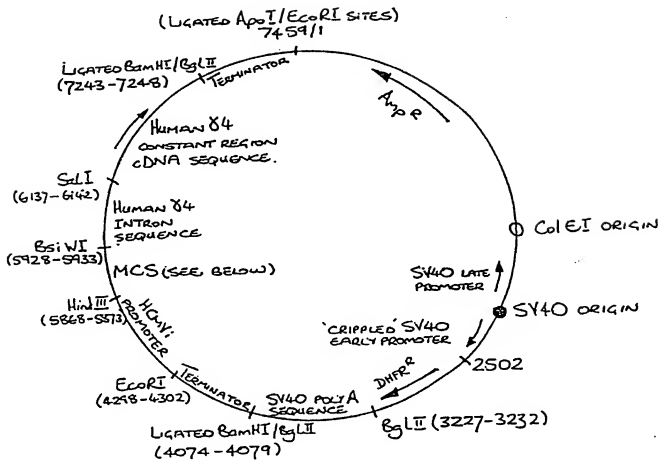 (LIGATED ApoI/EcoRI SITES)
7459/1
LIGATED BamHI/BgLII
(7243-7248)
TERMINATOR
AmpR
HUMAN γ4
CONSTANT REGION
cDNA SEQUENCE.
SalI
(6137-6142)
HUMAN γ4
INTRON
SEQUENCE
BsiWI
(5928-5933)
MCS (SEE BELOW)
HindIII
(5868-5873)
HCMVi
PROMOTER
EcoRI
(4298-4302)
TERMINATOR
LIGATED BamHI/BgLII
(4074-4079)
SV40 POLYA
SEQUENCE
BgLII (3227-3232)
DHFRR
2502
'CRIPPLED' SV40
EARLY PROMOTER
SV40 ORIGIN
SV40 LATE
PROMOTER
Col EI ORIGIN